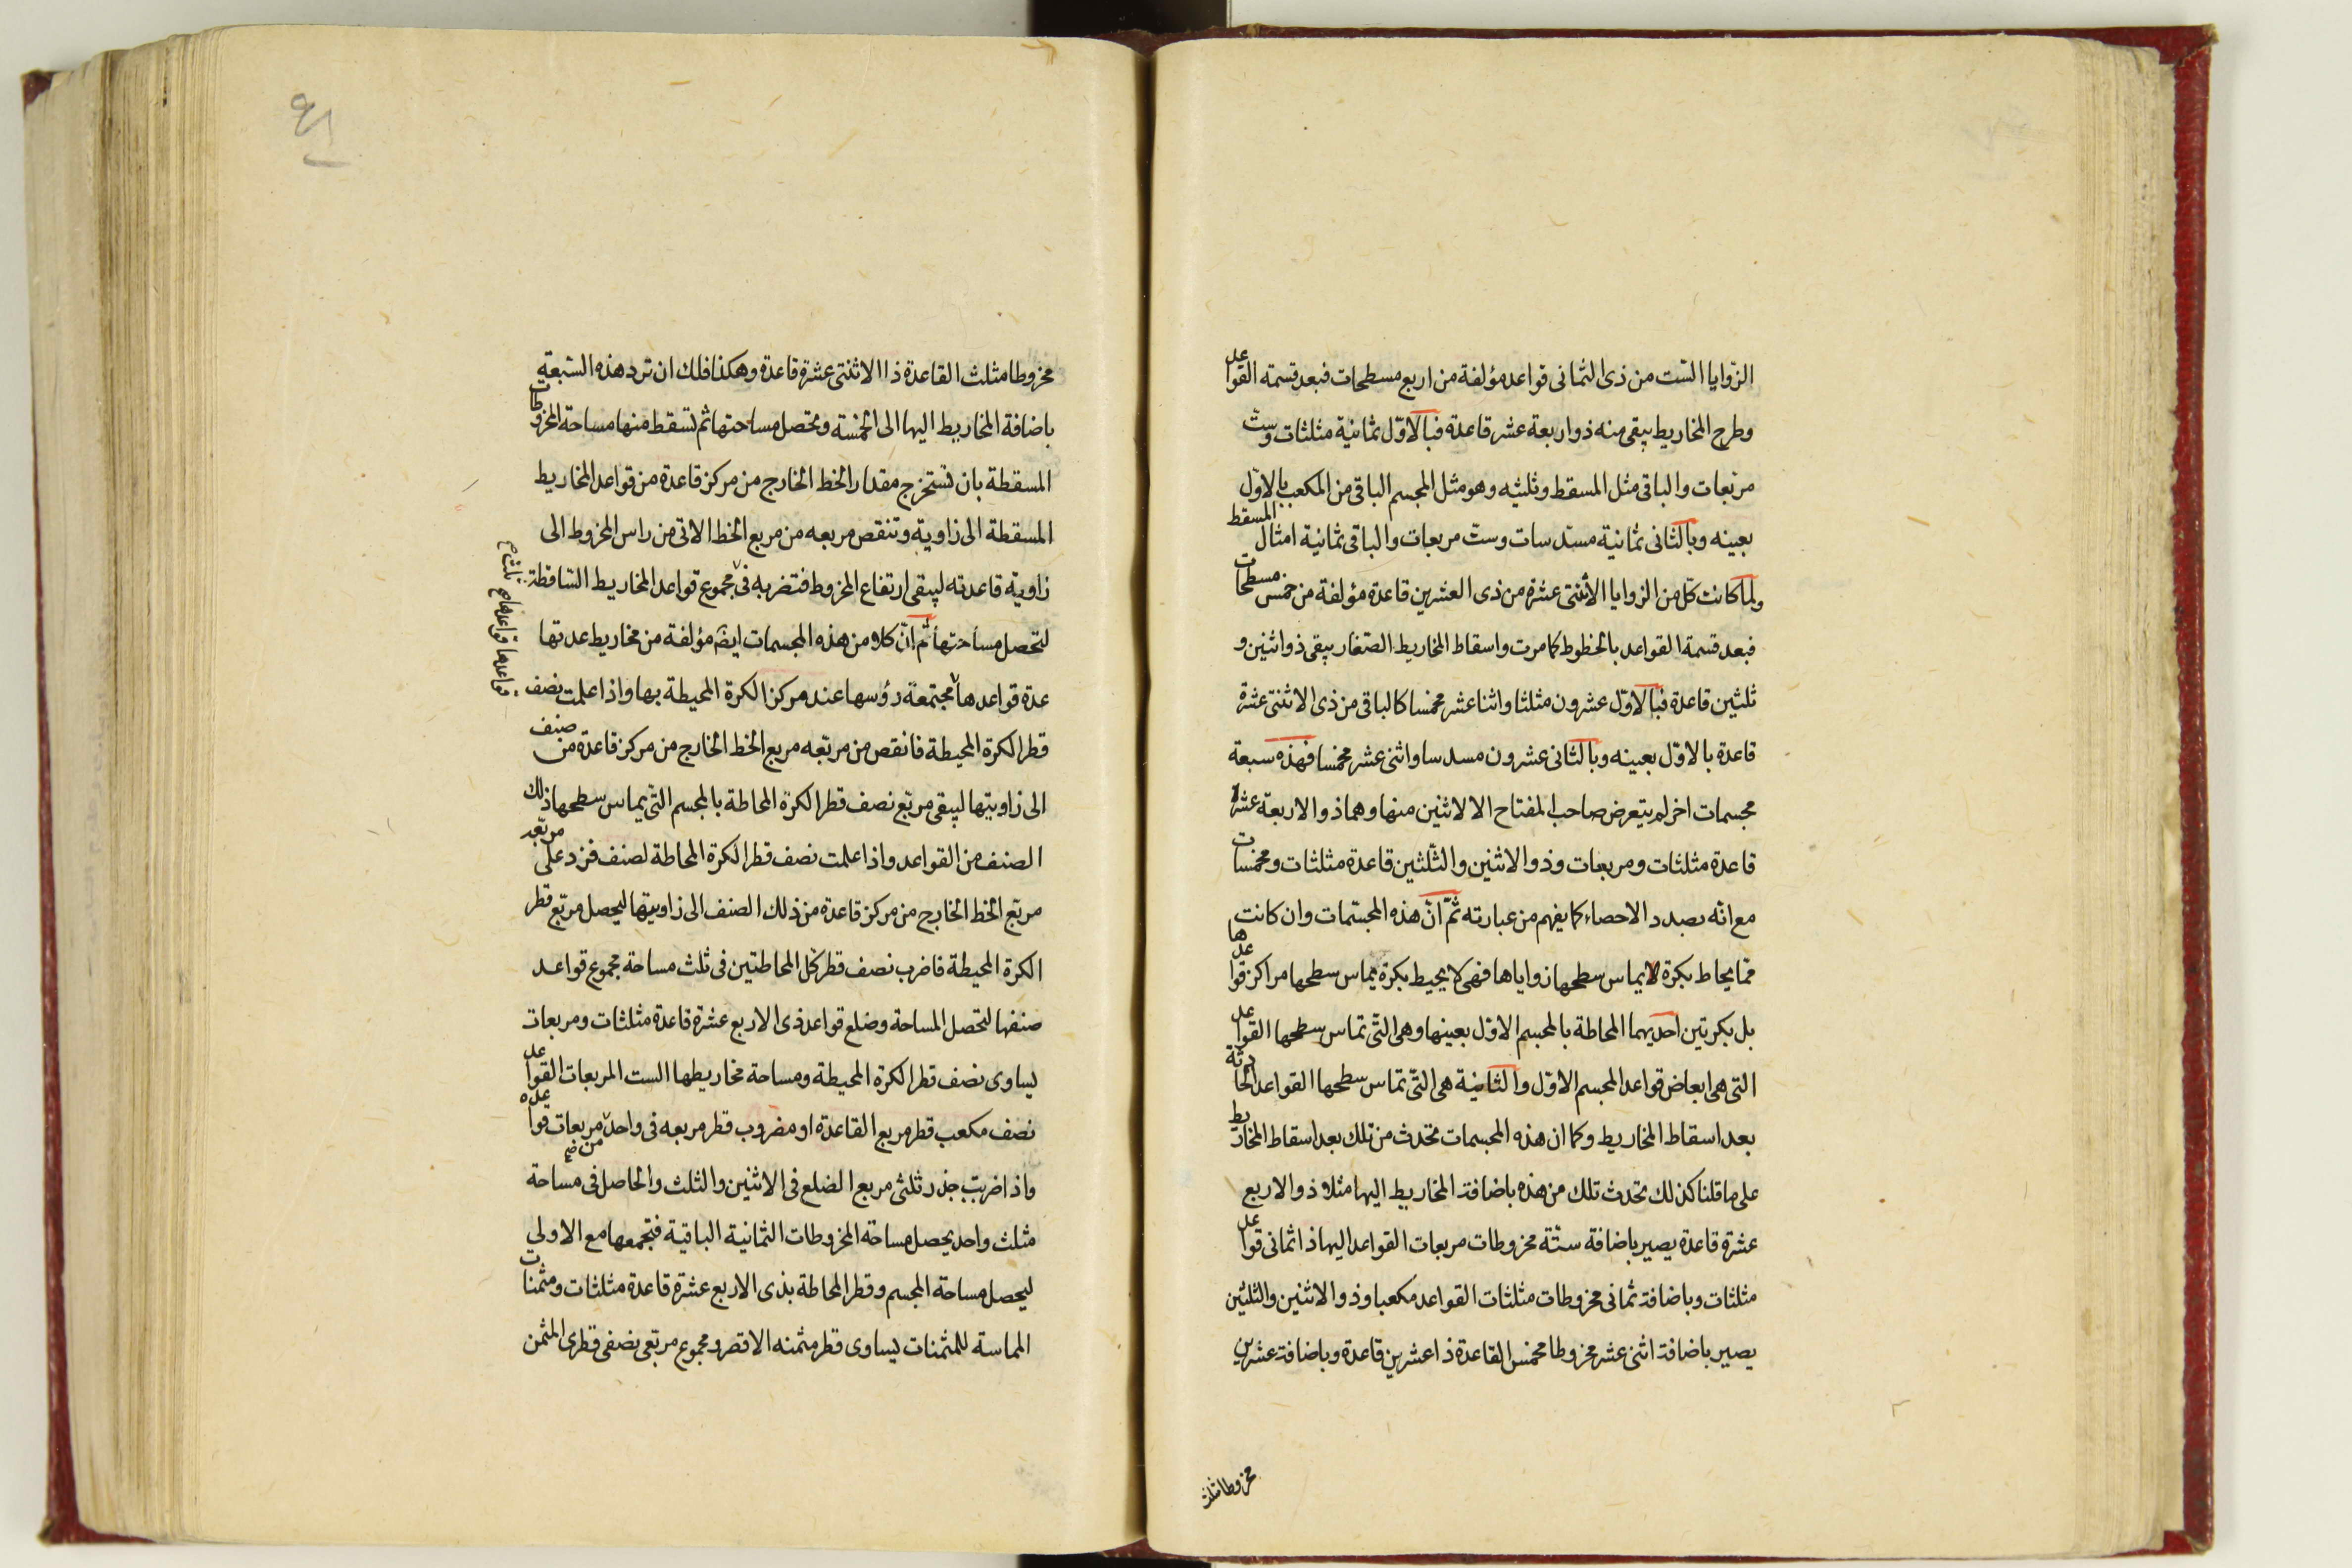 الزوايا الست من ذى الثمانى قواعد مؤلفة من اربع مسطحات فبعد قسمته القواعد
وطرح المخاريط يبقى منه ذو اربعة عشر قاعدة فبالاوّل ثمانية مثلثات وست
مربعات والباقى مثل المسقط وثلثيه وهو مثل المجسم الباقى من المكعب بالاوّل
بعينه وبالثانى ثمانية مسدسات وست مربعات والباقى ثمانية امثال المسقط
ولما كانت كل من الزوايا الاثنتى عشرة من ذى العشرين قاعدة مؤلفة من خمس مسطحات
فبعد قسمة القواعد بالخطوط كما مرت واسقاط المخاريط الصغار يبقى ذو اثنين و
ثلثين قاعدة فبالاوّل عشرون مثلثا واثنا عشر مخمسا كالباقى من ذى الاثنتى عشرة
قاعدة بالاوّل بعينه وبالثانى عشرون مسدسا واثنى عشر مخمسا فهذه سبعة
مجسمات اخر لم يتعرض صاحب المفتاح الا لاثنين منها وهما ذو الاربعة عشرة
قاعدة مثلثات ومربعات وذو الاثنين والثلثين قاعدة مثلثات ومخمسات
مع انّه بصدد الاحصاء كما يفهم من عبارته ثمّ انّ هذه المجسّمات وان كانت
ممّا يحاط بكرة لا يماس سطحها زواياها فهى لا يحيط بكرة يماس سطحها مراكز قواعدها
بل بكرتين احديهما المحاطة بالمجسم الاوّل بعينها وهى التّى تماس سطحها القواعد
التى هى ابعاض قواعد المجسم الاوّل والثانية هى التّى تماس سطحها القواعد الحادثة
بعد اسقاط المخاريط وكما ان هذه المجسمات تحدث من تلك بعد اسقاط المخاريط
على ما قلنا كذلك تحدث تلك من هذه باضافة المخاريط اليها مثلا ذو الاربع
عشرة قاعدة يصير باضافة ستّة مخروطات مربعات القواعد اليها ذا ثمانى قواعد
مثلثات وباضافة ثمانى مخروطات مثلثات القواعد مكعبا وذو الاثنين والثلثين
يصير باضافة اثنى عشر مخروطا مخمس القاعدة ذا عشرين قاعدة وباضافة عشرين
مخروطا مثلث
مخروطا مثلث القاعدة ذا الاثنتى عشرة قاعدة وهكذا فلك ان ترد هذه السّبعة
باضافة المخاريط اليها الى الخمسة وتحصل مساحتها ثم تسقط منها مساحة المخروطات
المسقطة بان تستخرج مقدار الخط الخارج من مركز قاعدة من قواعد المخاريط
المسقطة الى زاوية وتنقص مربعه من مربع الخط الاتى من راس المخروط الى
زاوية قاعدته ليبقى ارتفاع المخروط فتضربه فى مجموع قواعد المخاريط الساقطة
لتحصل مساحتها ثم انّ كلا من هذه المجسمات ايضا مؤلفة من مخاريط عدتها
عدة قواعدها مجتمعة رؤسها عند مركز الكرة المحيطة بها واذا علمت نصف
قطر الكرة المحيطة فانقص من مربّعه مربع الخط الخارج من مركز قاعدة من صنف
الى زاويتها ليبقى مربّع نصف قطر الكرة المحاطة بالمجسم التّى يماس سطحها ذلك
الصنف من القواعد واذا علمت نصف قطر الكرة المحاطة لصنف فزد على مربّعه
مربّع الخط الخارج من مركز قاعدة من ذلك الصنف الى زاويتها ليحصل مربّع قطر
الكرة المحيطة فاضرب نصف قطر كل المحاطتين فى ثلث مساحة مجموع قواعد
صنفها لتحصل المساحة وضلع قواعد ذى الاربع عشرة قاعدة مثلثات ومربعات
يساوى نصف قطر الكرة المحيطة ومساحة مخاريطها الست المربعات القواعد
نصف مكعب قطر مربع القاعدة او مضروب قطر مربعه فى واحد من مربعات قواعده
واذا ضربت جذر ثلثى مربع الضلع فى الاثنين والثلث والحاصل فى مساحة
مثلث واحد يحصل مساحة المخروطات الثمانية الباقية فتجمعها مع الاولى
ليحصل مساحة المجسم وقطر المحاطة بذى الاربع عشرة قاعدة مثلثات ومثمنات
المماسة للمثمنات يساوى قطر مثمنه الاقصر ومجموع مربّعى نصفى قطرى المثمن